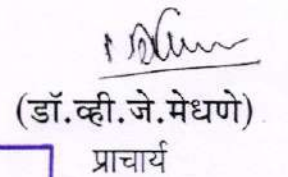 (डॉ.व्ही.जे.मेधणे)
प्राचार्य